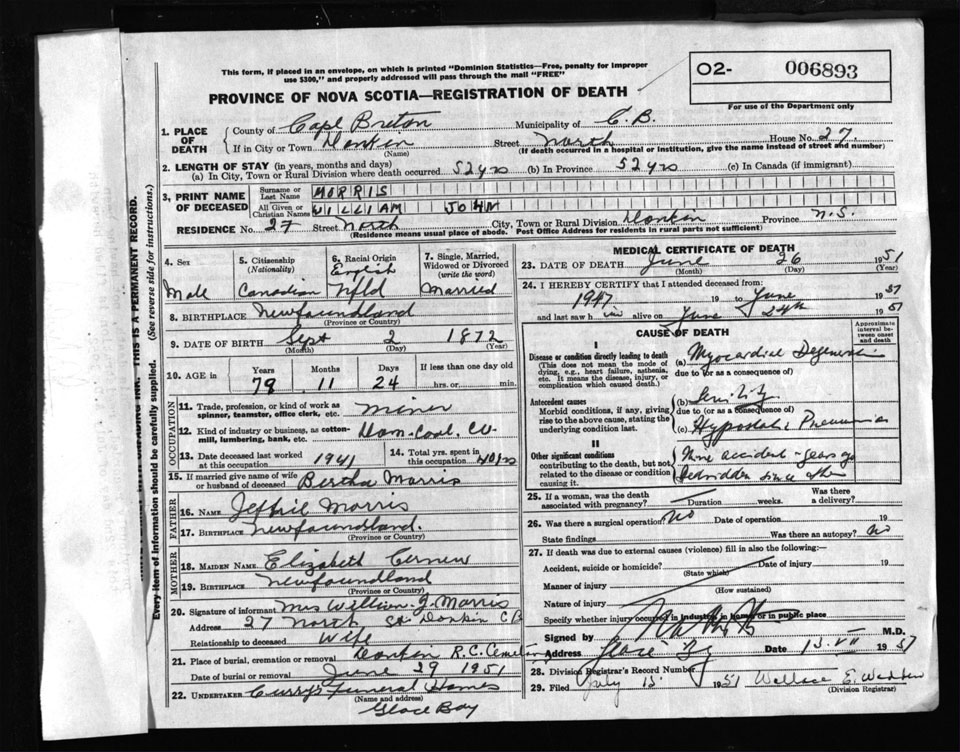 This form, if placed in an envelope, on which is printed "Dominion Statistics—Free, penalty for improper
use $300," and properly addressed will pass through the mail "FREE"
O2- 006893
For use of the Department only
PROVINCE OF NOVA SCOTIA—REGISTRATION OF DEATH
1. PLACE OF DEATH County of Cape Breton Municipality of C.B.
If in City or Town Donkin (Name) Street North House No. 27
(If death occurred in a hospital or institution, give the name instead of street and number)
2. LENGTH OF STAY (in years, months and days)
(a) In City, Town or Rural Division where death occurred 52 yrs (b) In Province 52 yrs (c) In Canada (if immigrant)
3. PRINT NAME OF DECEASED Surname or Last Name MORRIS
All Given or Christian Names WILLIAM JOHN
RESIDENCE No. 27 Street North City, Town or Rural Division Donkin Province N.S.
(Residence means usual place of abode. Post Office Address for residents in rural parts not sufficient)
4. Sex Male
5. Citizenship (Nationality) Canadian
6. Racial Origin English Nfld
7. Single, Married, Widowed or Divorced (write the word) Married
8. BIRTHPLACE Newfoundland
(Province or Country)
9. DATE OF BIRTH Sept 2 1872
(Month) (Day) (Year)
10. AGE in Years Months Days If less than one day old
78 11 24 hrs. or min.
OCCUPATION
11. Trade, profession, or kind of work as spinner, teamster, office clerk, etc. miner
12. Kind of industry or business, as cotton-mill, lumbering, bank, etc. Dom. Coal. Co
13. Date deceased last worked at this occupation 1941
14. Total yrs. spent in this occupation 40 yrs
15. If married give name of wife or husband of deceased Bertha Morris
FATHER
16. NAME Morris
17. BIRTHPLACE Newfoundland.
(Province or Country)
MOTHER
18. MAIDEN NAME Elizabeth
19. BIRTHPLACE Newfoundland
(Province or Country)
20. Signature of informant Mrs William J. Morris
Address 27 North St Donkin C B
Relationship to deceased Wife
21. Place of burial, cremation or removal Donkin R.C. Cemetery
Date of burial or removal June 29 1951
22. UNDERTAKER Curry's Funeral Homes
(Name and address)
Glace Bay
MEDICAL CERTIFICATE OF DEATH
23. DATE OF DEATH June 26 1951
(Month) (Day) (Year)
24. I HEREBY CERTIFY that I attended deceased from:
1947 19 to June 1951
and last saw him alive on June 24th 1951
CAUSE OF DEATH
Approximate interval between onset and death
I
Disease or condition directly leading to death
(This does not mean the mode of dying, e.g., heart failure, asthenia, etc. It means the disease, injury, or complication which caused death.)
(a) Myocardial Degeneration
due to (or as a consequence of)
Antecedent causes
Morbid conditions, if any, giving rise to the above cause, stating the underlying condition last.
(b) Senility
due to (or as a consequence of)
(c) Hypostatic Pneumonia
II
Other significant conditions
contributing to the death, but not related to the disease or condition causing it.
Mine accident - years ago
bedridden since then
25. If a woman, was the death associated with pregnancy? Duration weeks. Was there a delivery?
26. Was there a surgical operation? No Date of operation 19
State findings Was there an autopsy? No
27. If death was due to external causes (violence) fill in also the following:—
Accident, suicide or homicide? (State which) Date of injury 19
Manner of injury
(How sustained)
Nature of injury
Specify whether injury occurred in industry, in home, or in public place
Signed by M.D.
Address Glace Bay Date 13 VII 1951
28. Division Registrar's Record Number
29. Filed July 13 1951 Wallace E.
(Division Registrar)
THIS IS A PERMANENT RECORD.
Every item of information should be carefully supplied. (See reverse side for instructions.)